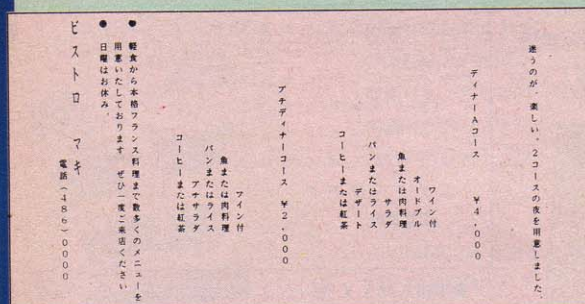 迷うのが、楽しい。2コースの夜を用意しました。
ディナーAコース ￥4,000
ワイン付
オードブル
魚または肉料理
サラダ
パンまたはライス
デザート
コーヒーまたは紅茶
プチディナーコース ￥2,000
ワイン付
魚または肉料理
パンまたはライス
プチサラダ
コーヒーまたは紅茶
● 軽食から本格フランス料理まで数多くのメニューを
用意いたしております ぜひ一度ご来店ください
● 日曜はお休み。
ビストロ マキ
電話(486)0000